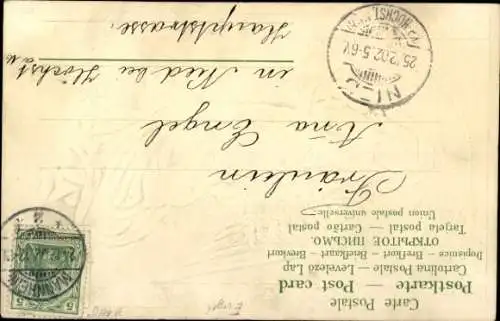 Carte Postale
Postkarte — Post card
Cartolina Postale — Levelező Lap
Dopisnice — Brefkort — Briefkaart — Brevkort
ОТКРЫТОЕ ПИСЬМО.
Tarjeta postal — Cartão postal
Union postale universelle
Fräulein
Anna Engel
in Nied bei Höchst
a/M
Hauptstrasse.
NIED
HÖCHST
25.12.02.5-6N
MANNHEIM
5
5